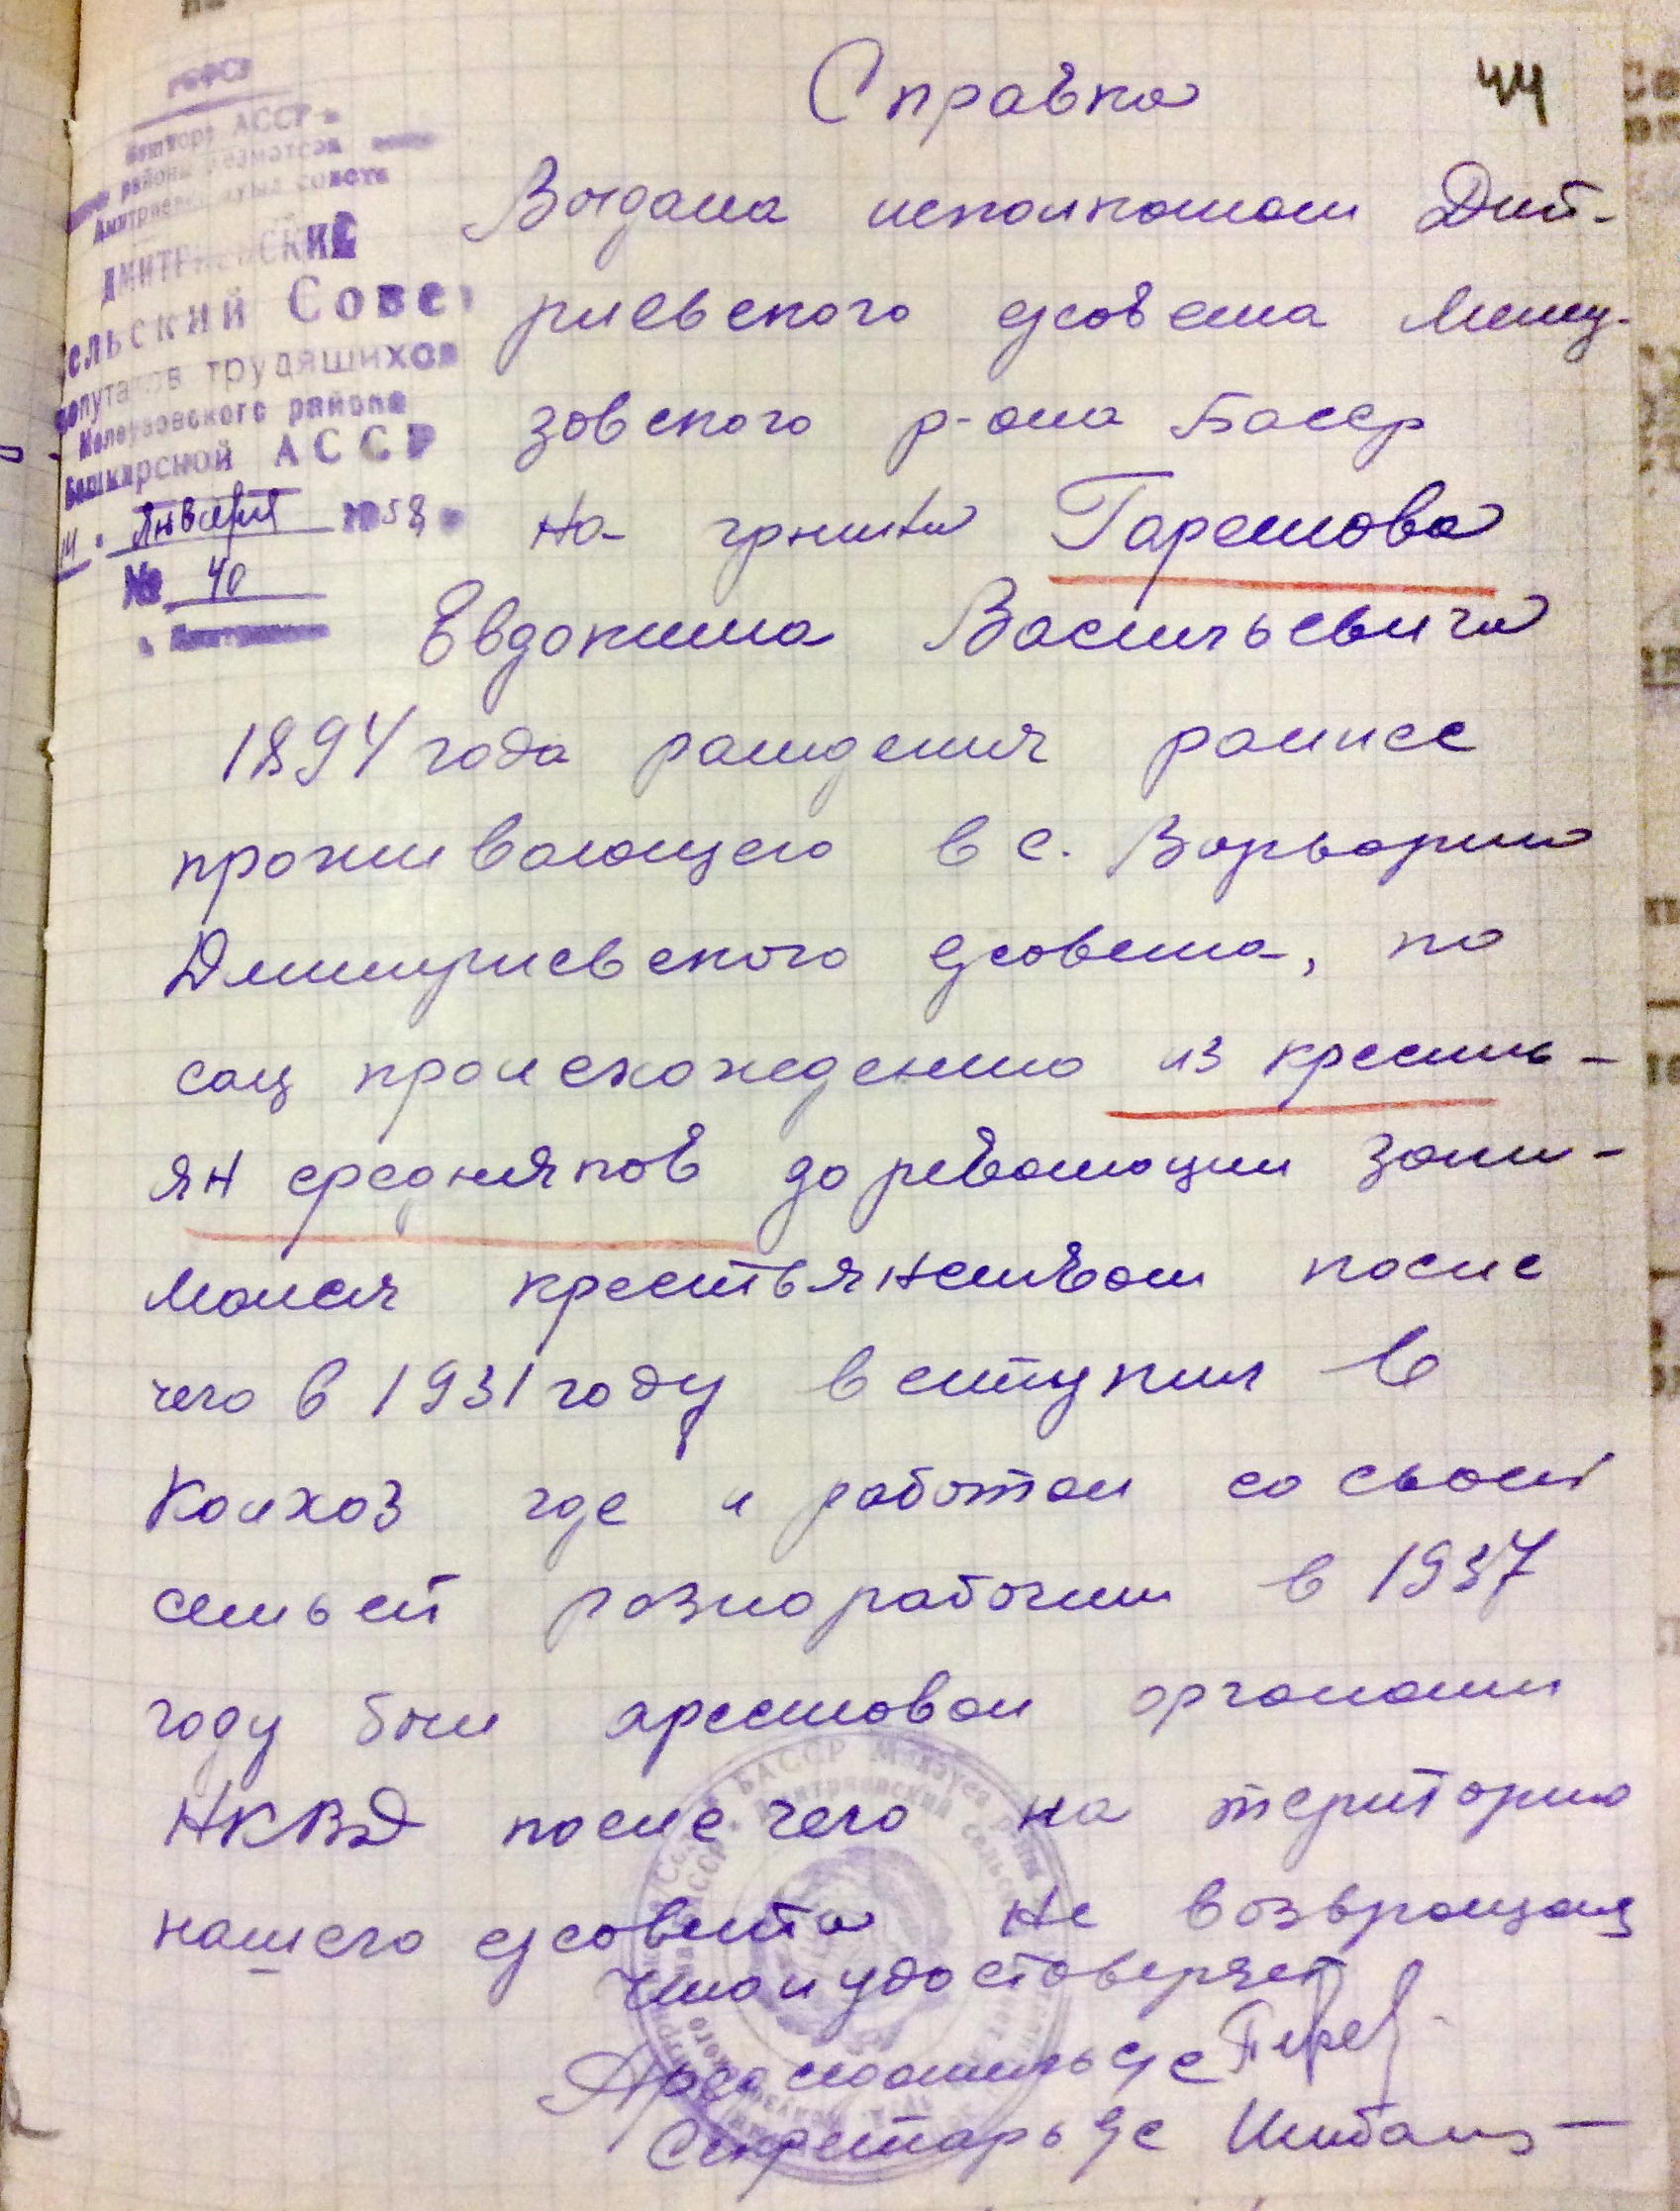 Справка
44
РСФСР
АССР
районы
совета
ДМИТРИЕВСКИЙ
СЕЛЬСКИЙ Совет
депутатов трудящихся
Мелеузовского района
Башкирской АССР
14 " Января 1958
№ 40
Выдана исполкомом Дмит-
риевского с/совета Мелеу-
зовского р-она Басср
на гр-на Гарешова
Евдокима Васильевича
1894 года рождения раннее
проживающего в с. Варварин
Дмитриевского с/совета, по
соц происхождению из кресть-
ян средняков до революции зани-
мался крестьянством после
чего в 1931 году вступил в
Колхоз где и работал со своей
семьей разнорабочим в 1937
году был арестован органами
НКВД после чего на територию
нашего с/совета не возвращался
что и удостоверяет
Председатель с/с
Секретарь с/с